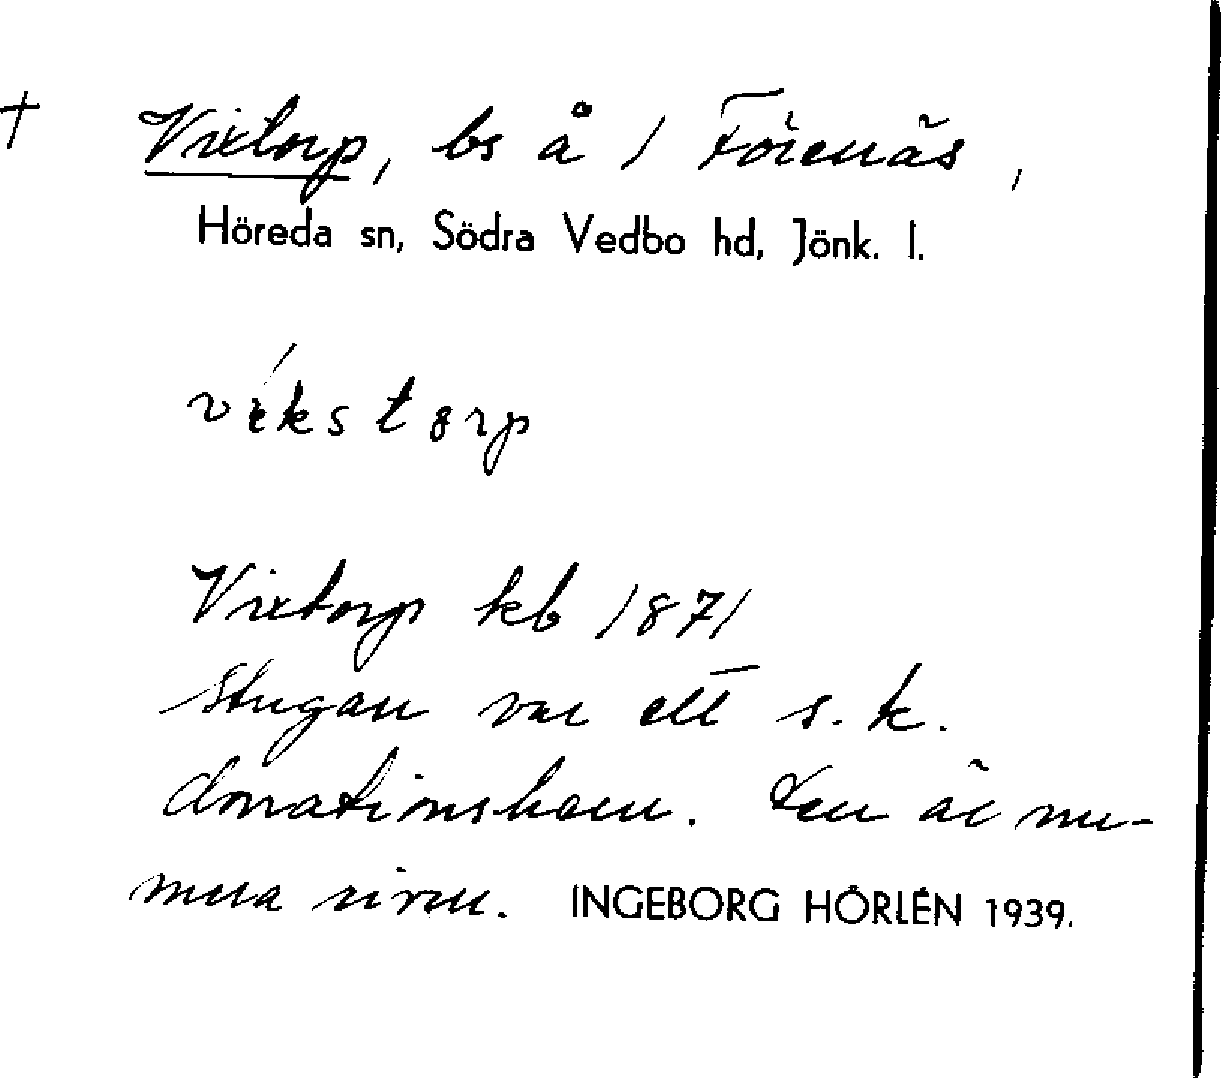 † Vixtorp, bs å 1 Förenäs,
Höreda sn, Södra Vedbo hd, Jönk. l.
vikstorp
Vixtorp kb 1871
Stugan var ett s.k.
donationshem. Den är nu-
mera riven. INGEBORG HÖRLÉN 1939.